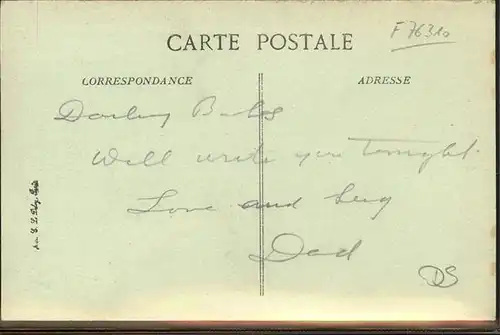 F 76310
CARTE POSTALE
CORRESPONDANCE
ADRESSE
Darling Babs
Will write you tonight.
Love and hug
Dad
DS